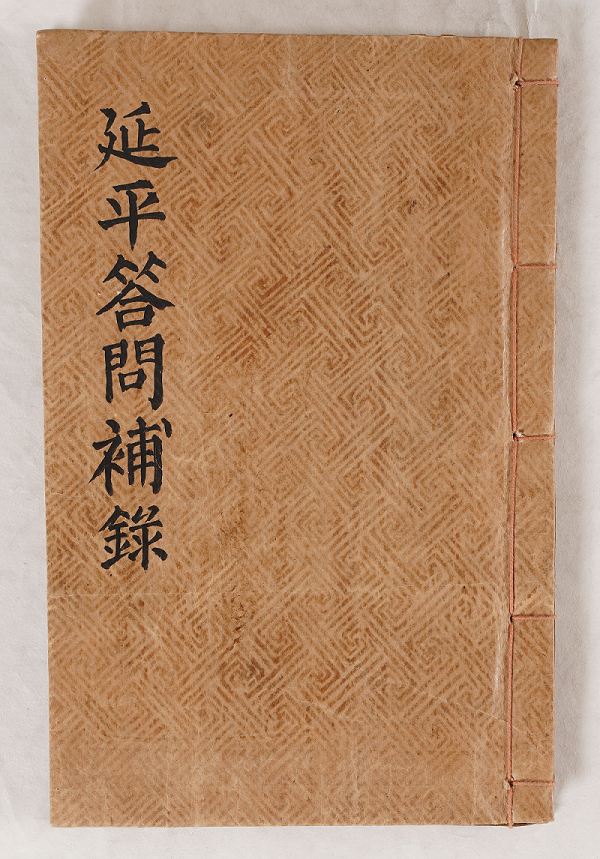 延平答問補錄